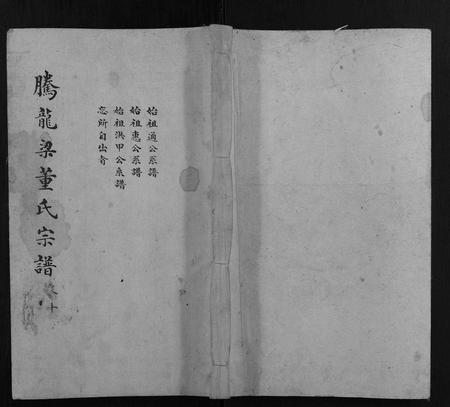 始祖通公系譜
始祖惠公系譜
始祖洪甲公系譜
忘所自出者
騰龍梁董氏宗譜 卷八十